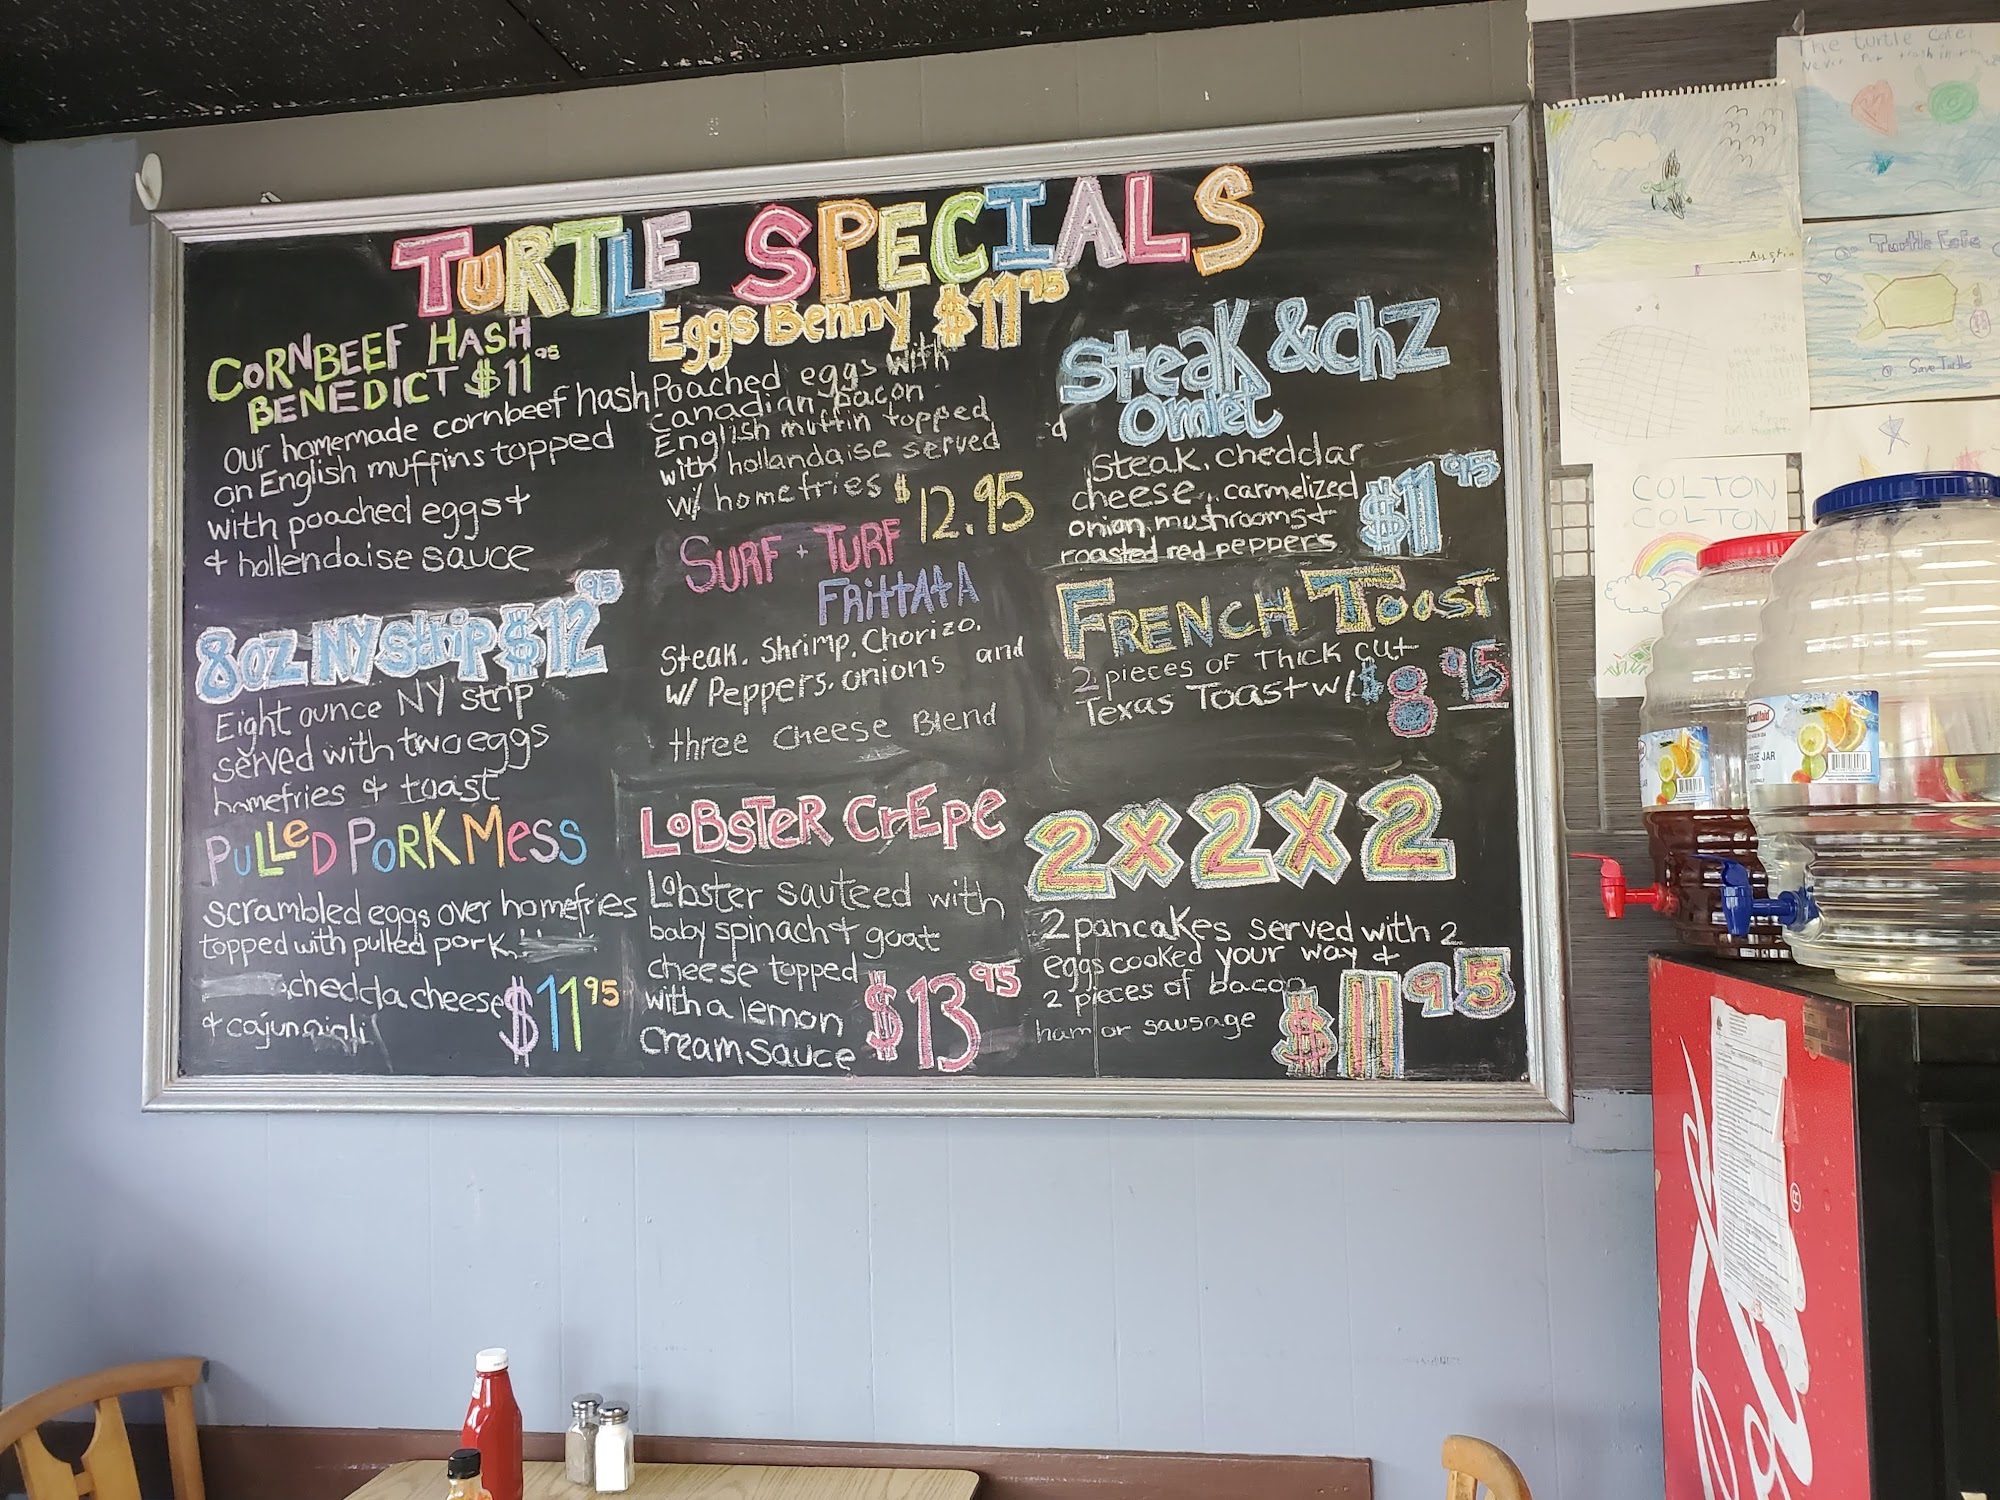 TURTLE SPECIALS
CORNBEEF HASH
BENEDICT $11 95
our homemade cornbeef hash
on English muffins topped
with poached eggs +
+ hollendaise sauce
8oz NY Strip $12 95
Eight ounce NY strip
served with two eggs
homefries + toast
PULLED PORK MESS
scrambled eggs over homefries
topped with pulled pork.
chedda cheese $11 95
+ cajun aioli
Eggs Benny $11 95
Poached eggs with
canadian bacon
English muffin topped
with hollandaise served
w/ homefries
SURF + TURF $12.95
FRittAtA
Steak. Shrimp. Chorizo.
w/ Peppers. onions and
three Cheese Blend
LOBSTER CREPE
Lobster sauteed with
baby spinach + goat
cheese topped
with a lemon
cream sauce $13 95
Steak & chz
omlet
steak. cheddar
cheese. carmelized
onion, mushrooms +
roasted red peppers $11 95
FRENCH TOAST
2 pieces OF Thick cut
Texas Toast w/ $8 95
2x2x2
2 pancakes served with 2
eggs cooked your way +
2 pieces of bacon
ham or sausage $11 95
The turtle Cafe!
Austin
Turtle Cafe
Save Turtles
COLTON
COLTON